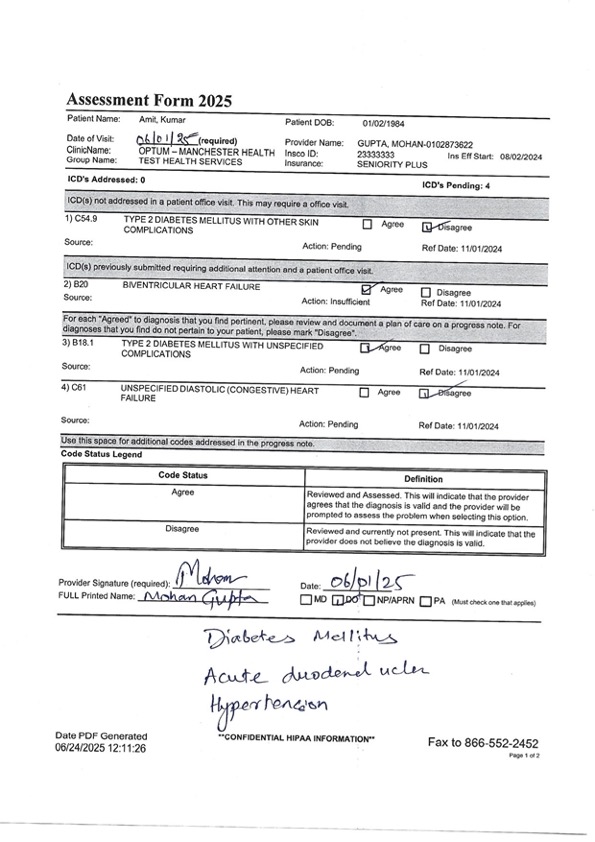 Assessment Form 2025
Patient Name: Amit, Kumar Patient DOB: 01/02/1984
Date of Visit: 06/01/25 (required) Provider Name: GUPTA, MOHAN-0102873622
ClinicName: OPTUM – MANCHESTER HEALTH Insco ID: 23333333 Ins Eff Start: 08/02/2024
Group Name: TEST HEALTH SERVICES Insurance: SENIORITY PLUS
ICD's Addressed: 0 ICD's Pending: 4
ICD(s) not addressed in a patient office visit. This may require a office visit.
1) C54.9 TYPE 2 DIABETES MELLITUS WITH OTHER SKIN Agree Disagree
COMPLICATIONS
Source: Action: Pending Ref Date: 11/01/2024
ICD(s) previously submitted requiring additional attention and a patient office visit.
2) B20 BIVENTRICULAR HEART FAILURE Agree Disagree
Source: Action: Insufficient Ref Date: 11/01/2024
For each "Agreed" to diagnosis that you find pertinent, please review and document a plan of care on a progress note. For
diagnoses that you find do not pertain to your patient, please mark "Disagree".
3) B18.1 TYPE 2 DIABETES MELLITUS WITH UNSPECIFIED Agree Disagree
COMPLICATIONS
Source: Action: Pending Ref Date: 11/01/2024
4) C61 UNSPECIFIED DIASTOLIC (CONGESTIVE) HEART Agree Disagree
FAILURE
Source: Action: Pending Ref Date: 11/01/2024
Use this space for additional codes addressed in the progress note.
Code Status Legend
Code Status Definition
Agree Reviewed and Assessed. This will indicate that the provider
agrees that the diagnosis is valid and the provider will be
prompted to assess the problem when selecting this option.
Disagree Reviewed and currently not present. This will indicate that the
provider does not believe the diagnosis is valid.
Provider Signature (required): Mohan Date: 06/01/25
FULL Printed Name: Mohan Gupta MD DO NP/APRN PA (Must check one that applies)
Diabetes Mellitus
Acute duodenal ucler
Hypertension
Date PDF Generated **CONFIDENTIAL HIPAA INFORMATION** Fax to 866-552-2452
06/24/2025 12:11:26 Page 1 of 2